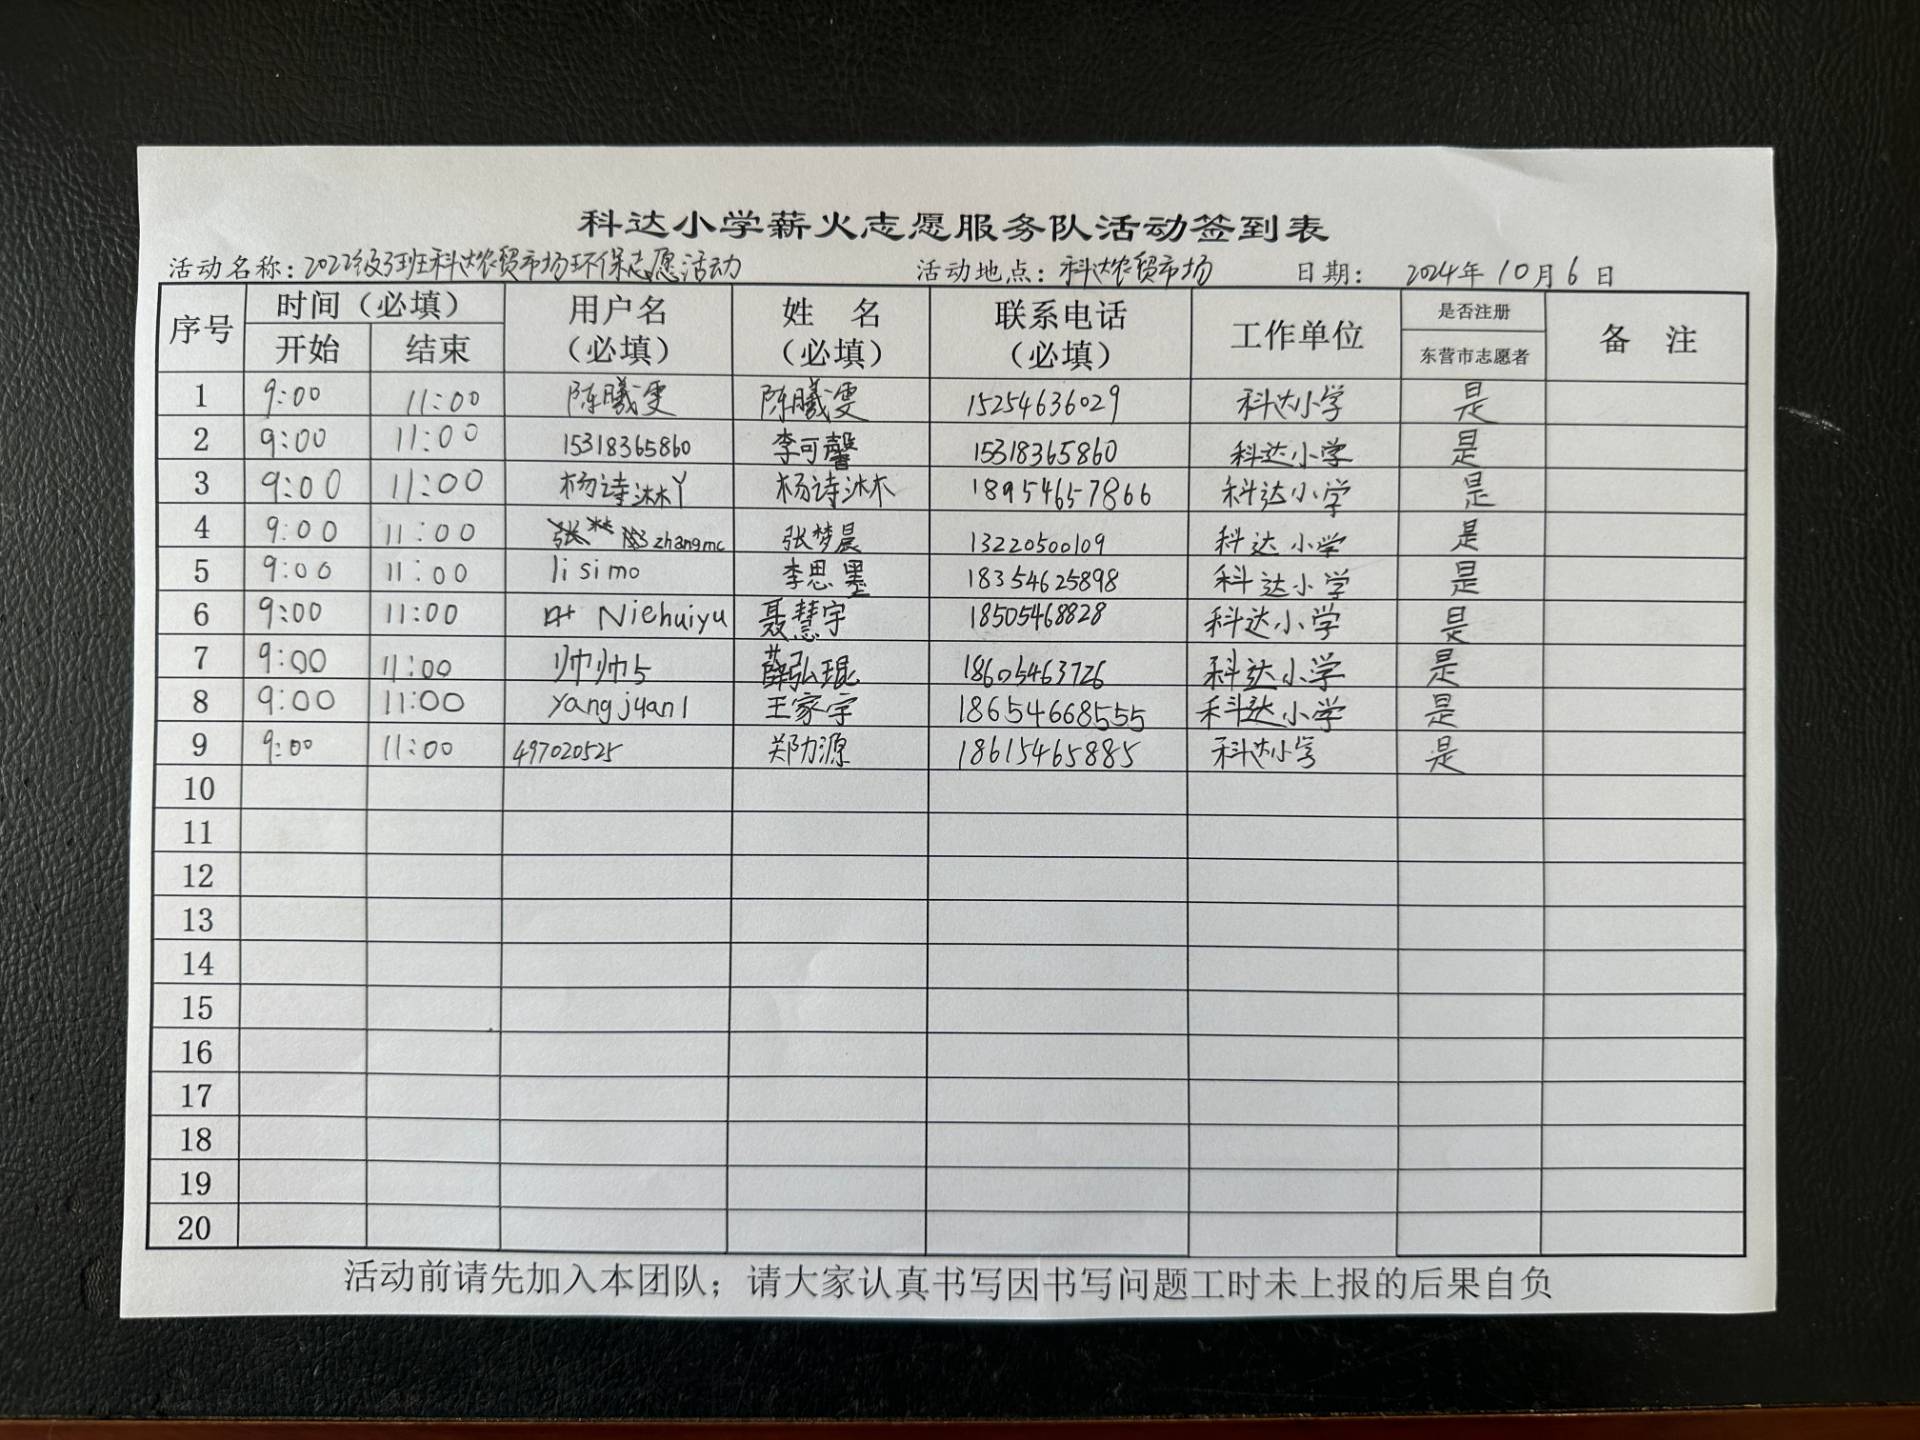 科达小学薪火志愿服务队活动签到表
活动名称：2022级3班科达农贸市场环保志愿活动 活动地点：科达农贸市场 日期： 2024年10月6日
序号 时间（必填） 用户名（必填） 姓 名（必填） 联系电话（必填） 工作单位 是否注册 备 注
开始 结束 东营市志愿者
1 9:00 11:00 陈曦雯 陈曦雯 15254636029 科达小学 是
2 9:00 11:00 15318365860 李可馨 15318365860 科达小学 是
3 9:00 11:00 杨诗淋丫 杨诗淋 18954657866 科达小学 是
4 9:00 11:00 zhangmc 张梦晨 13220500109 科达小学 是
5 9:00 11:00 lisimo 李思墨 18354625898 科达小学 是
6 9:00 11:00 Niehuiyu 聂慧宇 18505468828 科达小学 是
7 9:00 11:00 帅帅5 薛弘琨 18605463726 科达小学 是
8 9:00 11:00 yangjuan1 王家宇 18654668555 科达小学 是
9 9:00 11:00 497020525 郑力源 18615465885 科达小学 是
10
11
12
13
14
15
16
17
18
19
20
活动前请先加入本团队；请大家认真书写因书写问题工时未上报的后果自负